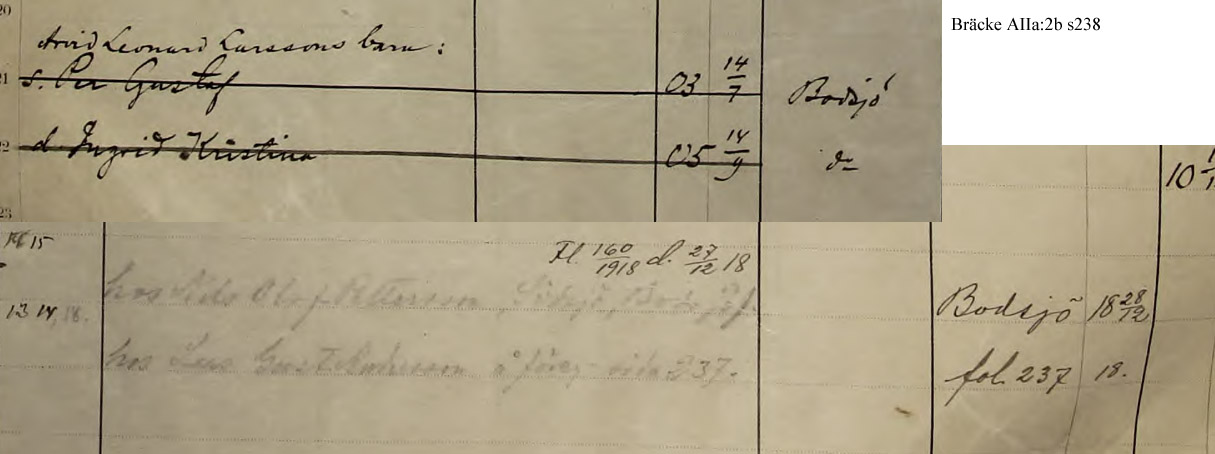 20
Bräcke AIIa:2b s238
Arvid Leonard Larssons barn:
21 s. Per Gustaf 03 14/7 Bodsjö
22 d Ingrid Kristina 05 14/9 do
23
10
15 Fl. 160/1918 d. 27/12 18
13 14, 18. hos Nils Olof Pettersson, Bodsjö 18 28/12
hos Lars Gust. Andersson å föreg. sida 237. fol. 237 18.